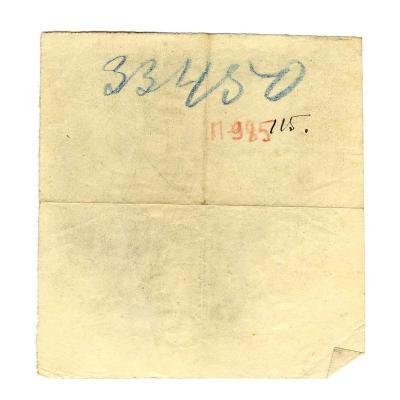 33450
П-985 115.